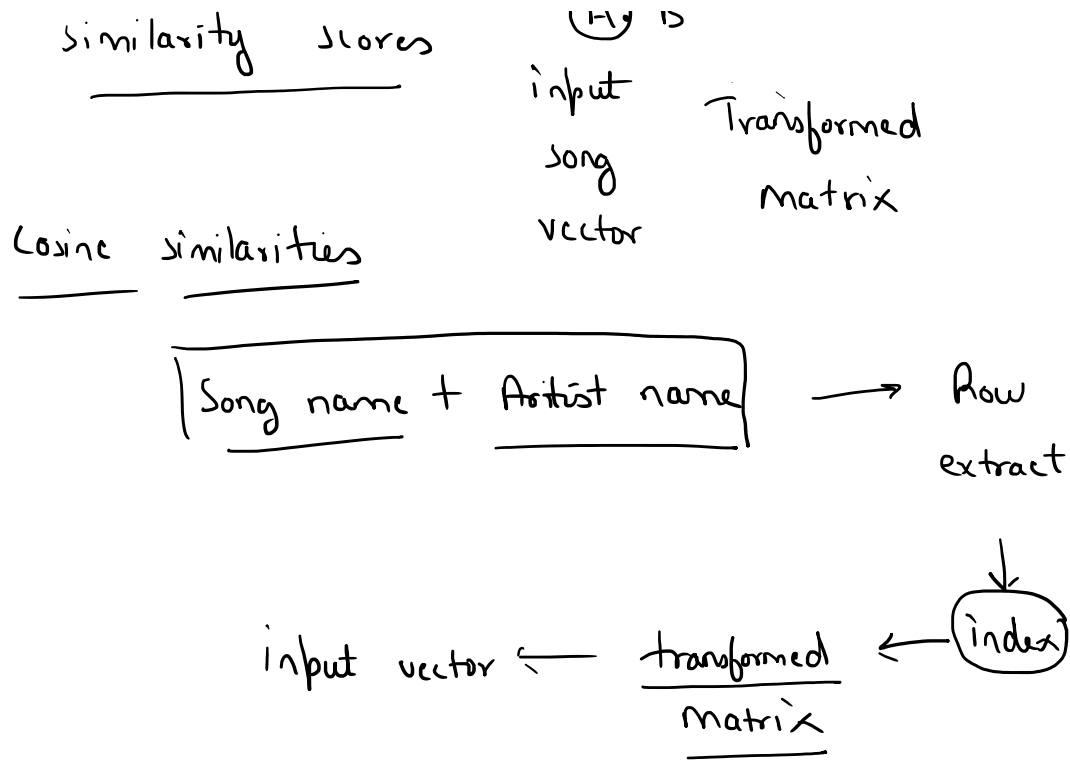 similarity scores
input
song
vector
Transformed
matrix
Cosine similarities
Song name + Artist name → Row
extract
↓
input vector ← transformed ← index
matrix